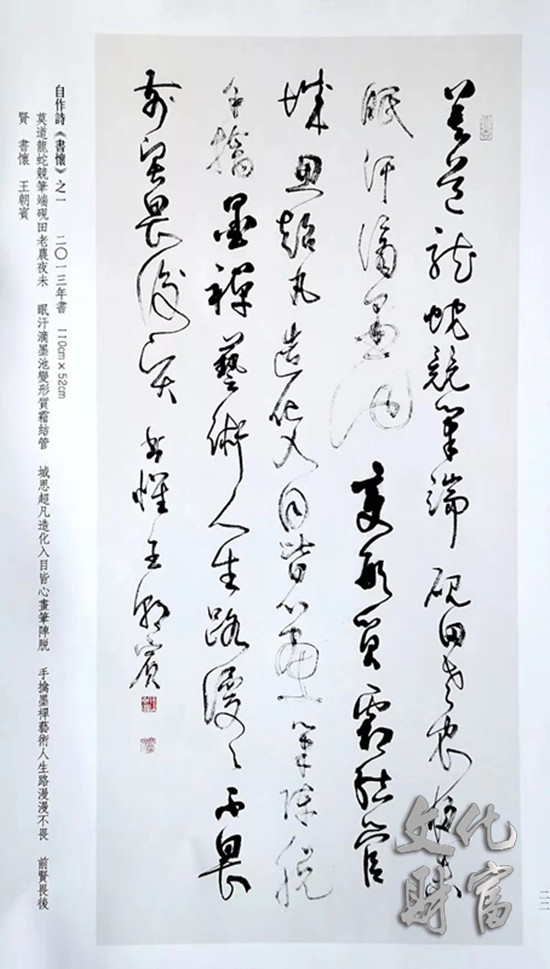 莫道龍蛇競筆端硯田老農夜未
眠汗滴墨池變形質霜結管
城思超凡造化入目皆心畫筆陣脫
手擒墨禪藝術人生路漫漫不畏
前賢畏後賢 書懷 王朝賓
自作詩《書懷》之一 二〇一三年書 110cm×52cm
莫道龍蛇競筆端硯田老農夜未 眠汗滴墨池變形質霜結管 城思超凡造化入目皆心畫筆陣脫 手擒墨禪藝術人生路漫漫不畏 前賢畏後
賢 書懷 王朝賓
二二
文化
財富